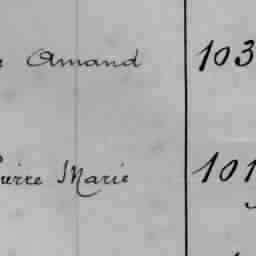 Amand 103
Pierre Marie 101